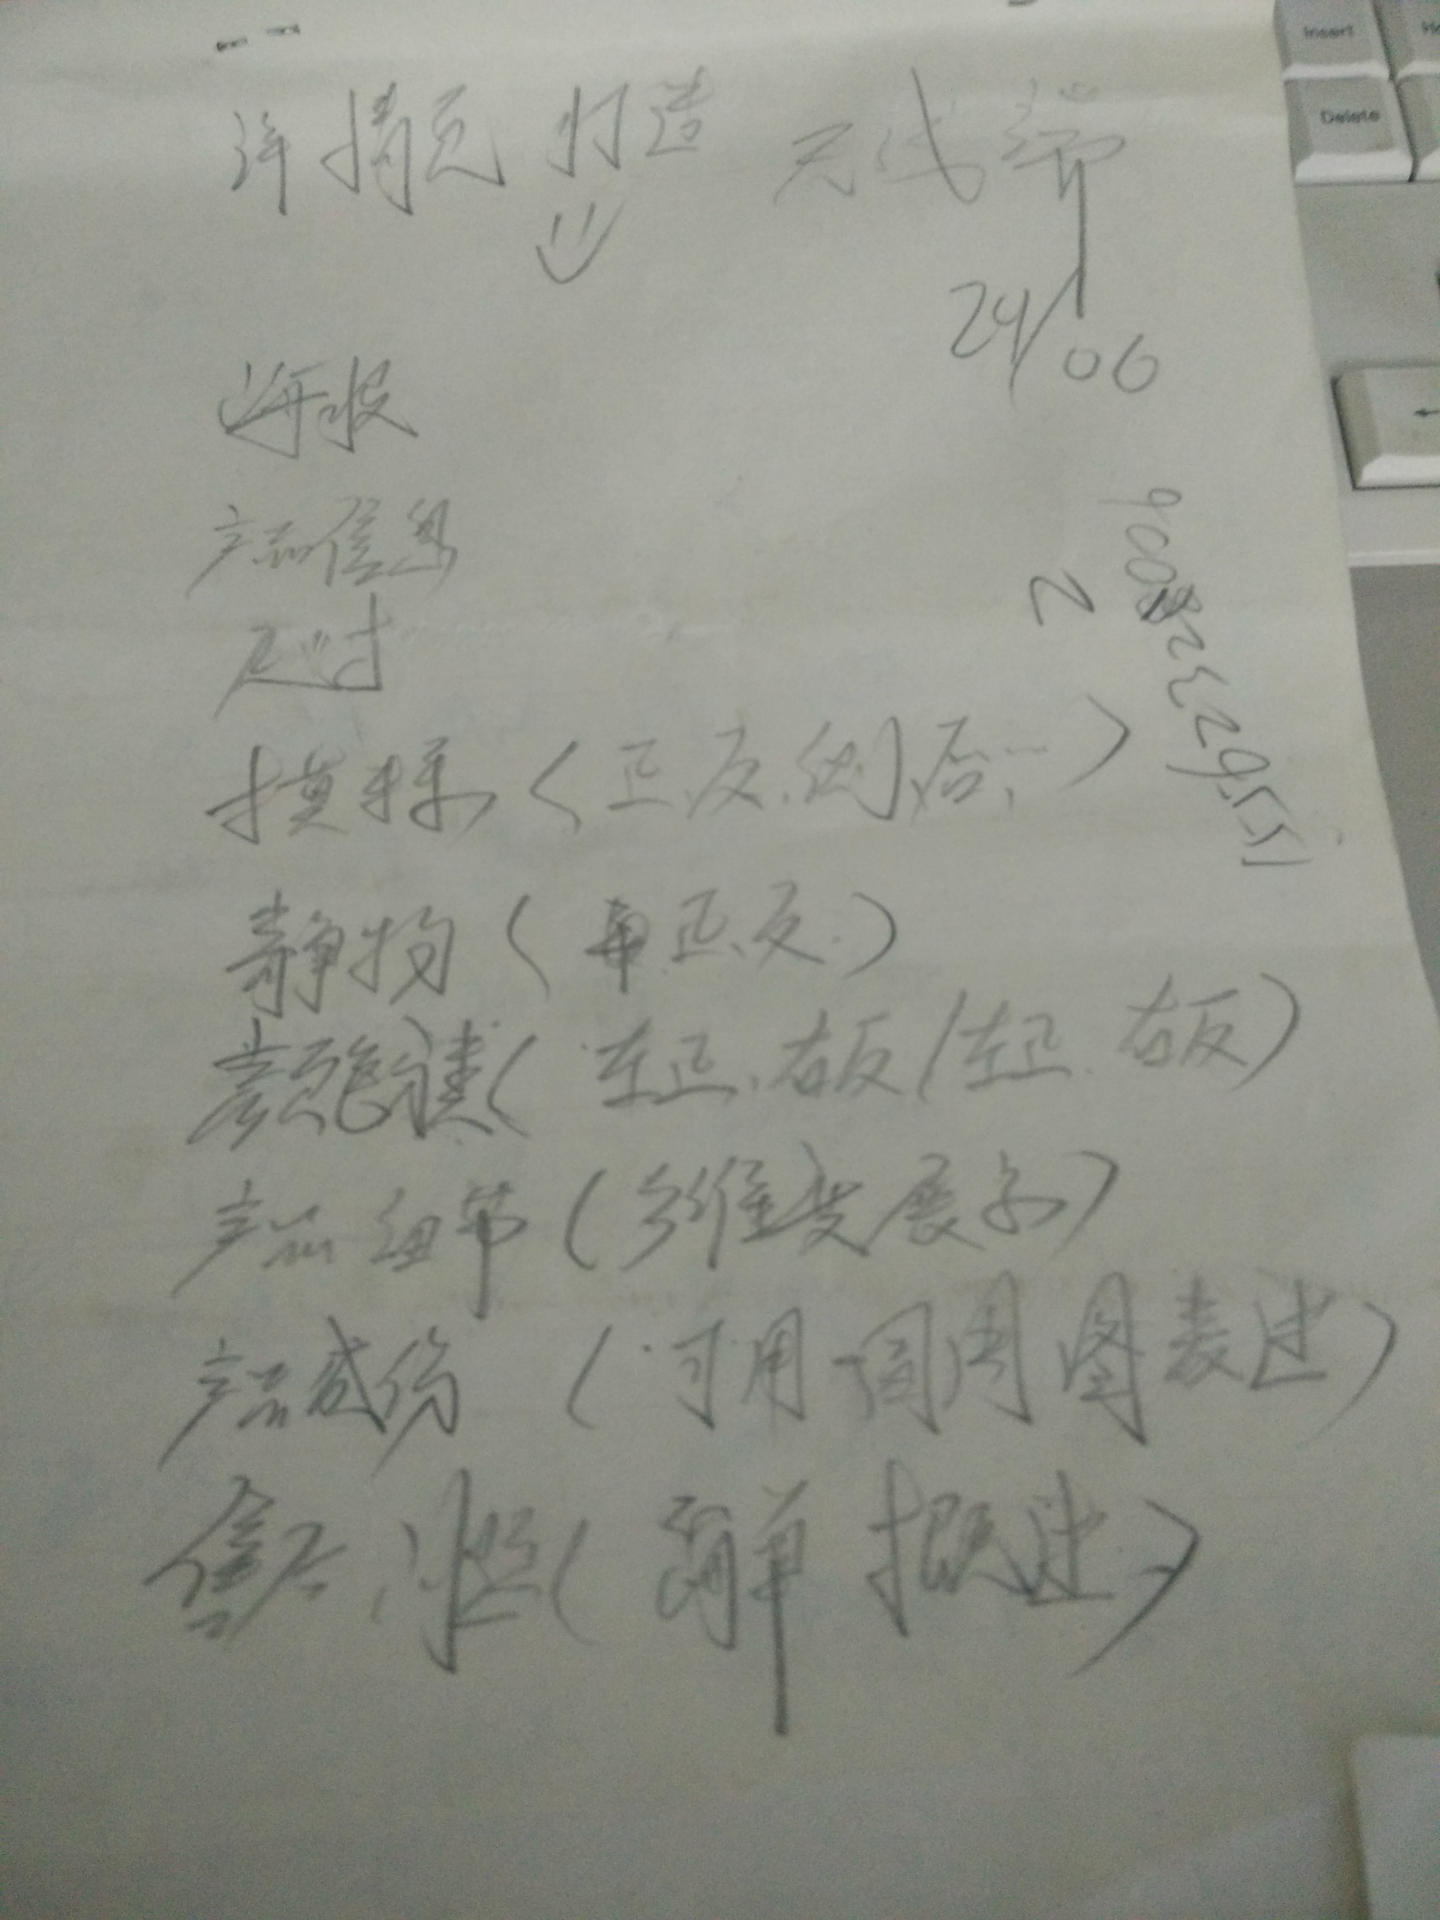 详情页 打造 无线端
24/06
海报
产品信息
尺寸
模样（正、反、侧、后、…）
静物（单正反）
颜色（左正、右反/左正、右反）
产品细节（多维度展示）
产品成份（可用 圆周图表述）
售后（简单概述）
Insert
Delete